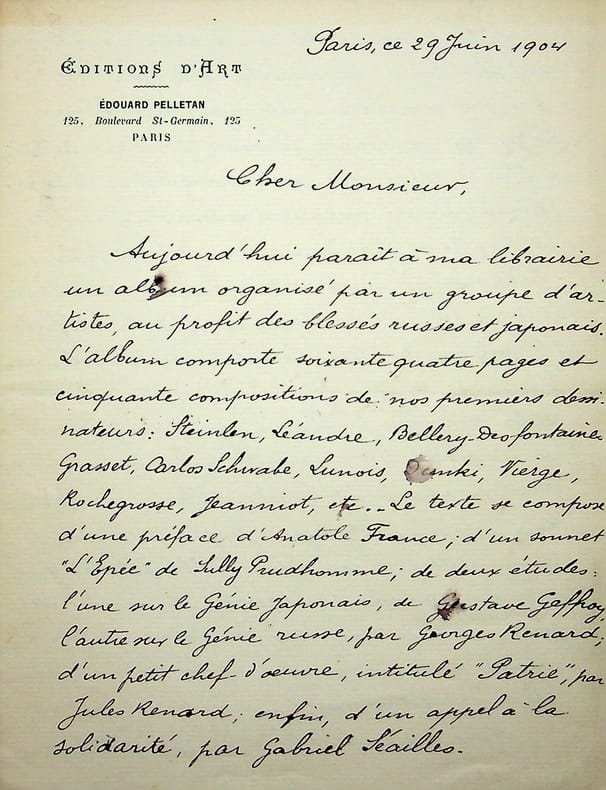 Paris, ce 29 Juin 1904
ÉDITIONS D'ART
ÉDOUARD PELLETAN
125, Boulevard St-Germain, 125
PARIS
Cher Monsieur,
Aujourd'hui parait à ma librairie
un album organisé par un groupe d'ar-
tistes, au profit des blessés russes et japonais.
L'album comporte soixante quatre pages et
cinquante compositions de nos premiers dessi-
nateurs: Steinlen, Léandre, Bellery-Desfontaines
Grasset, Carlos Schwabe, Lunois, Dunki, Vierge,
Rochegrosse, Jeanniot, etc.. Le texte se compose
d'une préface d'Anatole France; d'un sonnet
"L'Epée" de Sully Prudhomme; de deux études:
l'une sur le Génie Japonais, de Gustave Geffroy,
l'autre sur le Génie russe, par Georges Renard;
d'un petit chef-d'œuvre, intitulé "Patrie", par
Jules Renard; enfin, d'un appel à la
solidarité, par Gabriel Séailles.